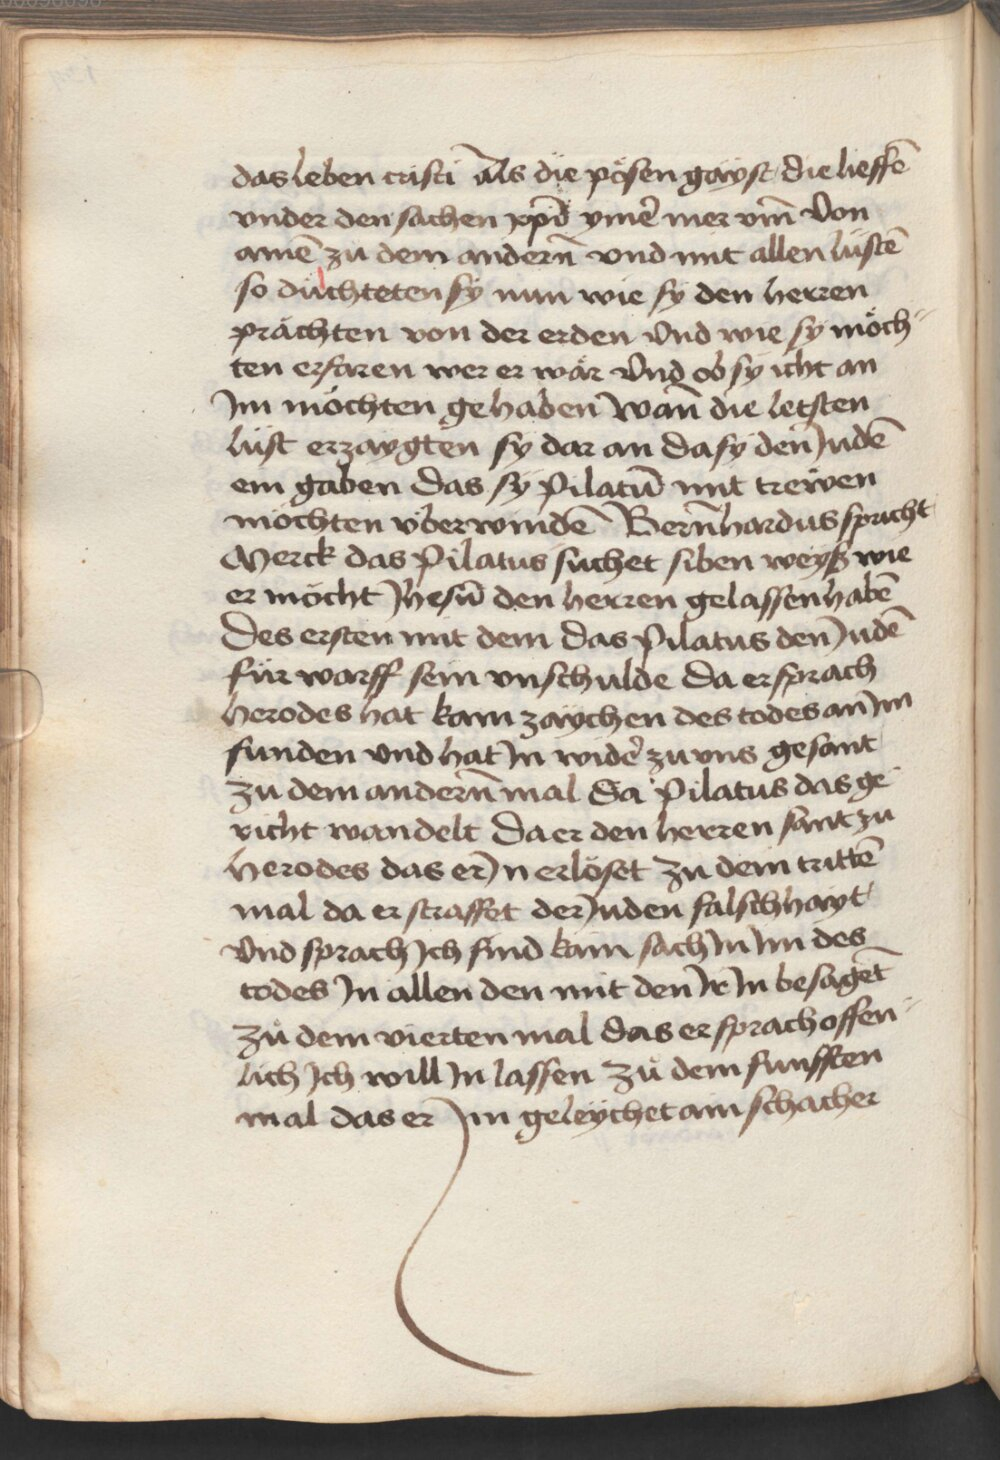 das leben cristi Als die pösen gayst die lieffē
vnder den sachen xp̄i ymē mer vm̄ Von
ainē zu dem andern̄ vnd mit allen lüstē
so düchteten sÿ nun wie sÿ den herren
prächten von der erden Vnd wie sÿ möch-
ten erfaren wer er wär Vnd ob sÿ icht an
Im möchten gehaben Wan̄ die letsten
lüst erzaygten sÿ dar an da sÿ den Judē
ein gaben das sÿ Pilatū mit trewen
möchten vberwindē Bern̄hardus spricht
Merck das Pilatus suchet siben weyß wie
er möcht Jhesū den herren gelassen habē
Des ersten mit dem das Pilatus den Judē
für warff sein vnschulde Da er sprach
herodes hat kain zaychen des todes an Im
funden vnd hat In widē zu vns gesant
zu dem andern̄ mal Da Pilatus das ge-
richt wandelt Da er den herren sant zu
herodes das er In erlöset Zu dem trittē
mal da er straffet der Juden falschhayt
Vnd sprach Ich find kain sach In Im des
todes In allen den mit den Ir In besagēt
Zů dem vierten mal das er sprach offen-
lich Ich will In lassen Zů dem funfften
mal das er Im geleychet ain schacher